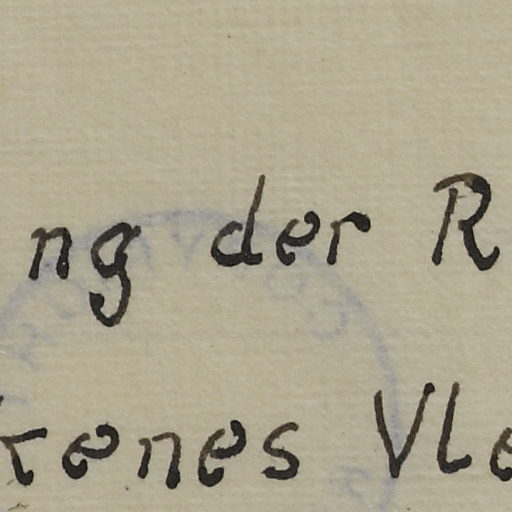 ng der R
kenes Vle